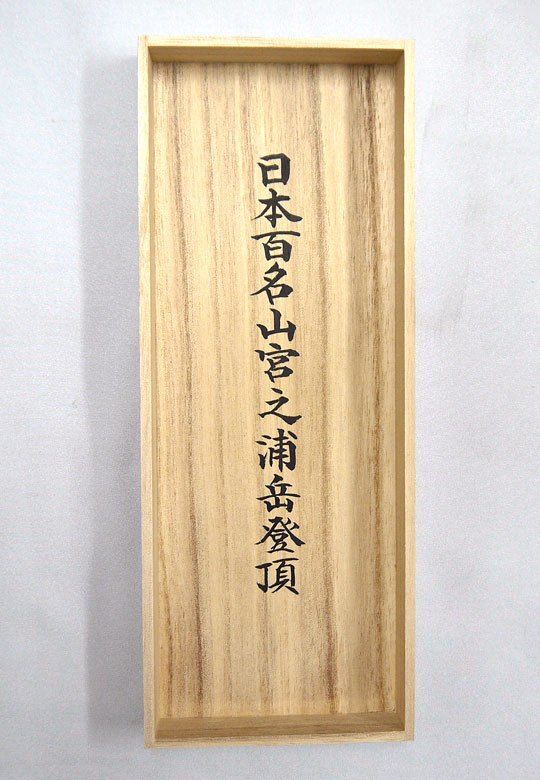 日本百名山宮之浦岳登頂